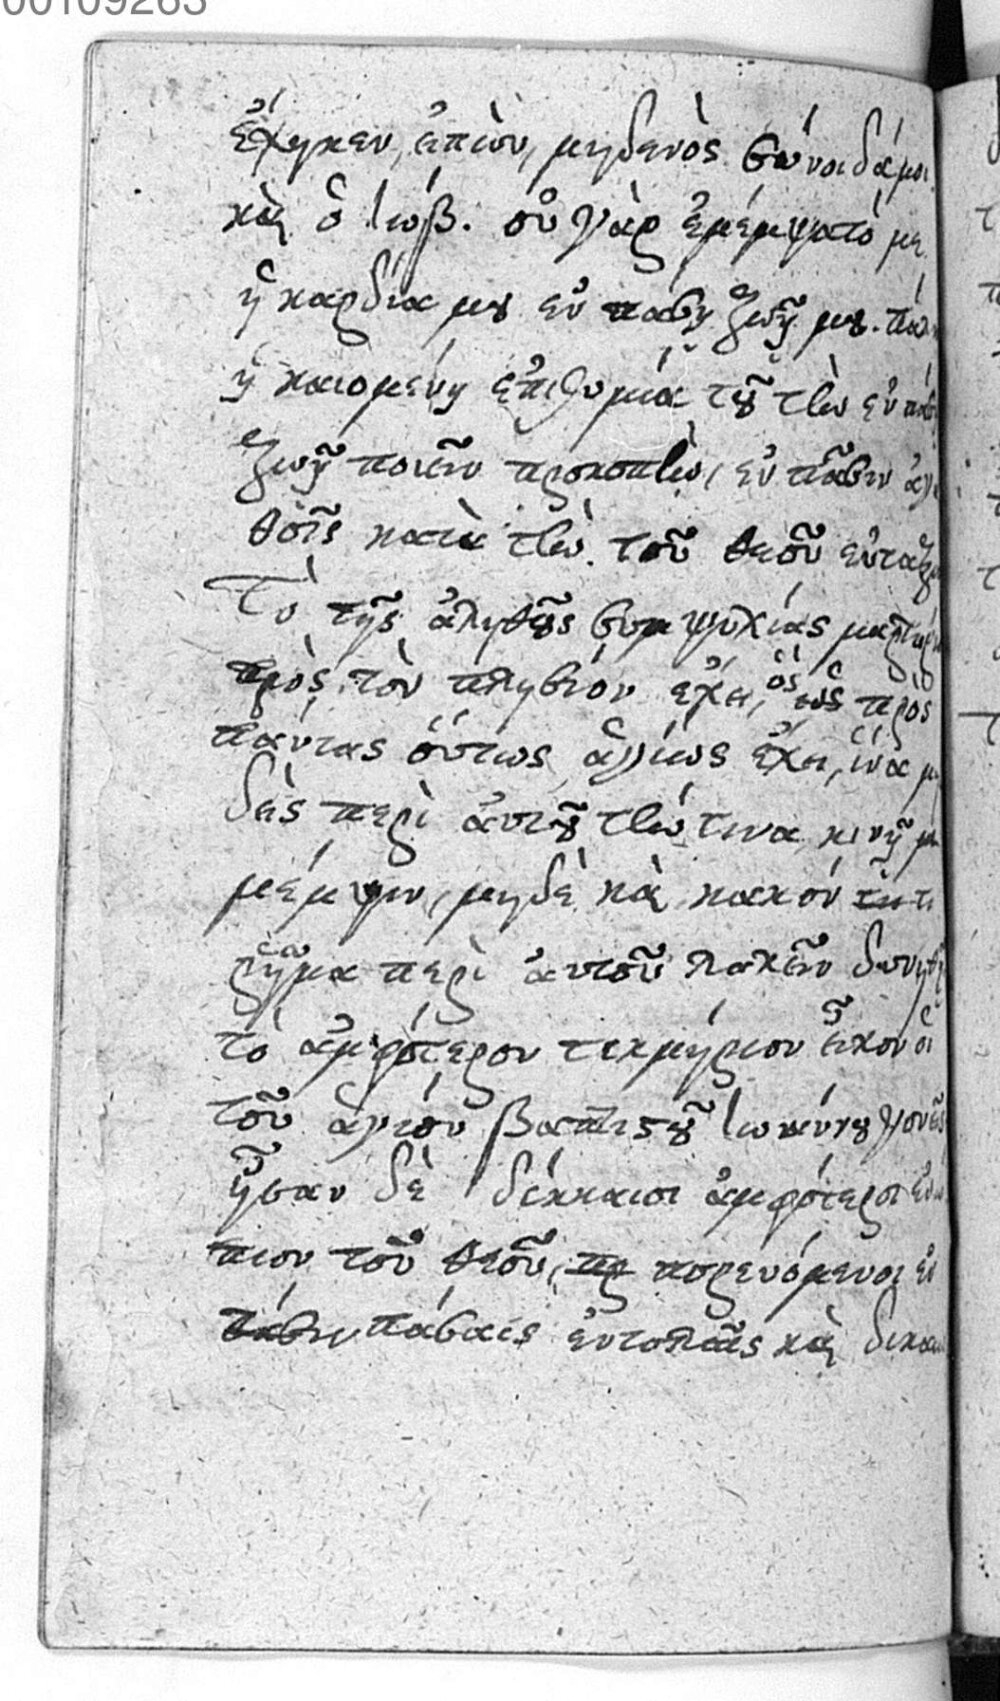 00109263
ἔσχηκεν, εἰπὼν, μηδενὸς σύνοιδά μοι.
καὶ ὁ Ἰώβ. οὐ γὰρ ἐμέμψατό με
ἡ καρδία μου ἐν πάσῃ ζωῇ μου.
ἡ καιομένη ἐπιθυμία τοῦ τὴν ἐν πάσῃ
ζωῇ ποιεῖν προκοπὴν, ἐν πᾶσιν ἀγα
θοῖς κατὰ τὴν τοῦ θεοῦ
Τὸ τῆς ἀληθοῦς συμψυχίας
πρὸς τὸν πλησίον ἔχει, ὃς ὡς πρὸς
πάντας οὕτως ἁγίως ἔχει, ἵνα μη
δεὶς περὶ αὐτοῦ τήν τινα κινῇ
μέμψιν, μηδὲ κἂν κακόν τι
ῥῆμα περὶ αὐτοῦ λαλεῖν δυνηθῇ
τὸ ἀμφότερον τεκμήριον εἶχον οἱ
τοῦ ἁγίου βαπτιστοῦ Ἰωάννου γονεῖς
ἦσαν δὲ δίκαιοι ἀμφότεροι ἐνώ
πιον τοῦ θεοῦ, πορευόμενοι ἐν
πάσαις ἐντολαῖς καὶ